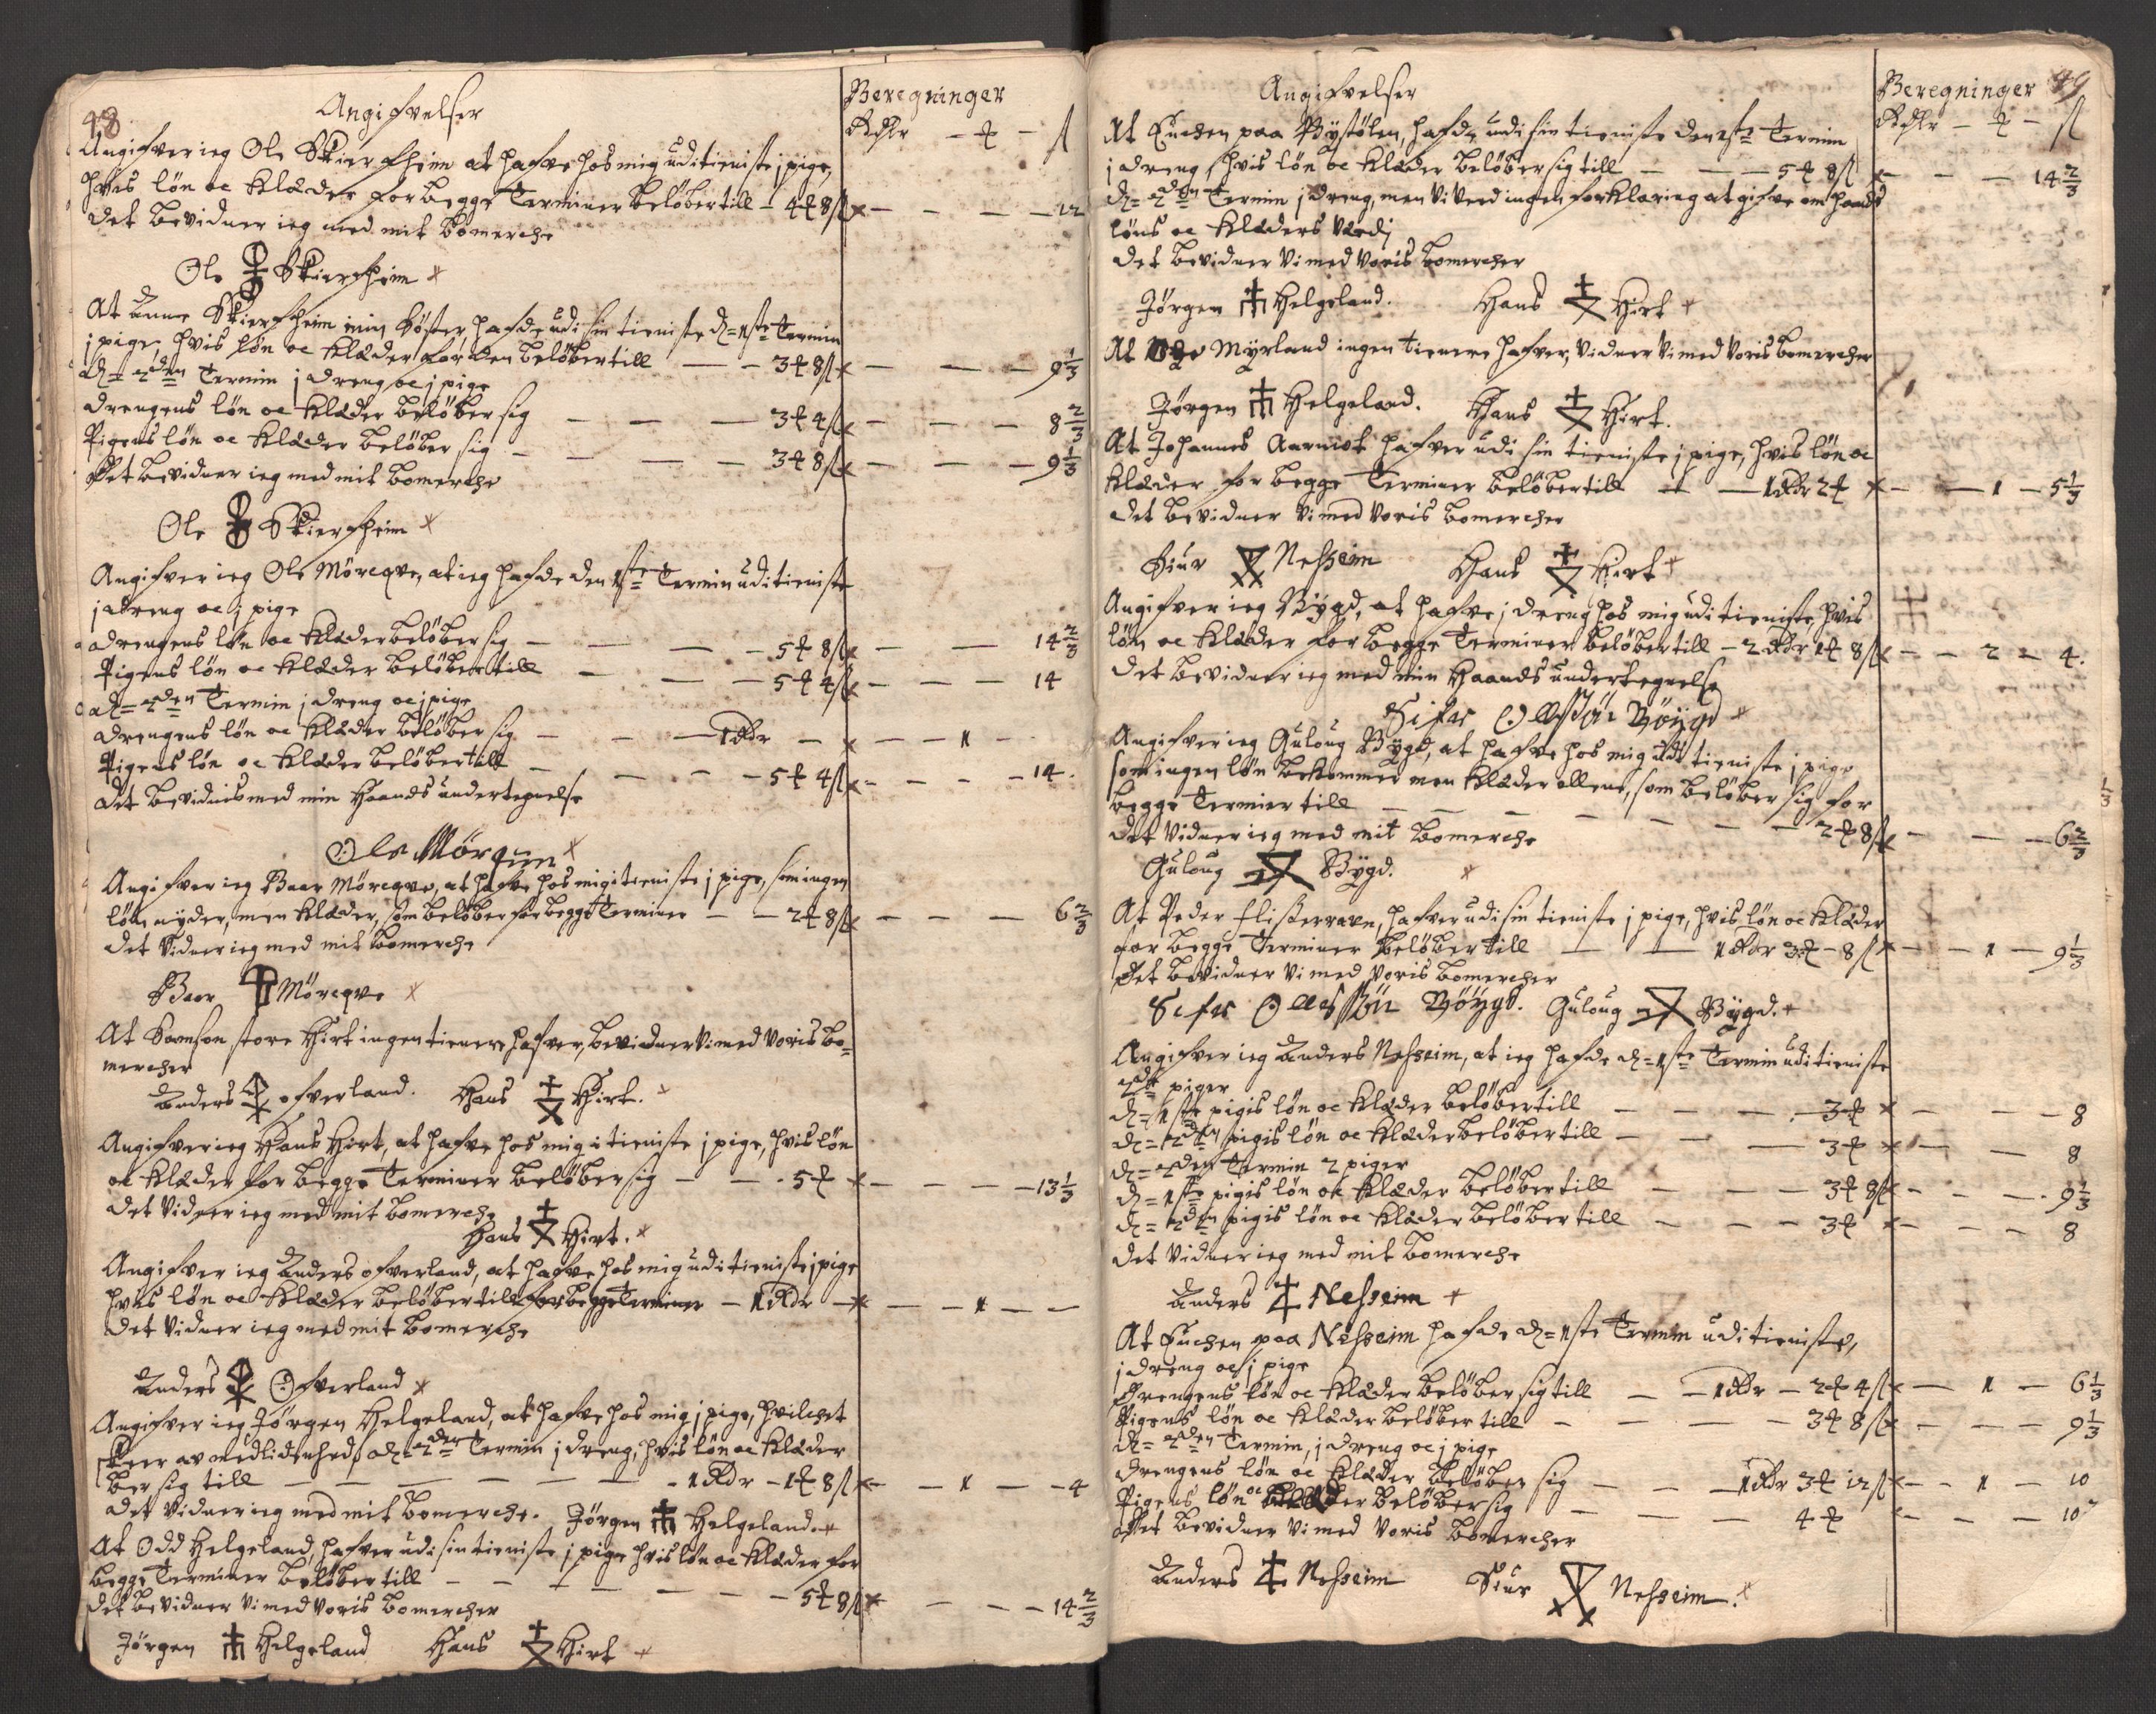 48
Angifvelser
Beregninger
Rdlr — ꝶ — ſl
Angifver ieg Ole Skierfheim at hafve hos mig udi tieniste j pige,
hvis løn oc Klæder for begge Terminer beløber till — 4 ꝶ 8 ſl × — — — 12
Det bevidner ieg med mit bomerche
Ole Skierfheim
At Anne Skierfheim min Søster, hafde udi sin tieniste d= 1ste Termin
j pige, hvis løn oc Klæder for den beløber till — — 3 ꝶ 8 ſl × — — — 9 1/3
d= 2den Termin j dreng oc j pige
drengens løn oc Klæder beløber sig — — — 3 ꝶ 4 ſl × — — — 8 2/3
Pigens løn oc Klæder beløber sig — — — 3 ꝶ 8 ſl × — — — 9 1/3
Det bevidner ieg med mit bomerche
Ole Skierfheim
Angifver ieg Ole Mörcqve, at ieg hafde den 1ste Termin udi tieniste
j dreng oc j pige
drengens løn oc Klæder beløber sig — — — 5 ꝶ 8 ſl × — — — 14 2/3
Pigens løn oc Klæder beløber till — — — 5 ꝶ 4 ſl × — — — 14
d= 2den Termin j dreng oc j pige
drengens løn oc Klæder beløber sig — — — 1 Rdr — × — — 1 —
Pigens løn oc Klæder beløber till — — — 5 ꝶ 4 ſl × — — — 14.
Det bevidnis med min Haands undertegnelse
Ole Mörcqum
Angifver ieg Baar Mörcqve, at hafve hos mig i tieniste j pige, som ingen
løn nyder, men Klæder, som beløber for begge Terminer — — 2 ꝶ 8 ſl × — — — 6 2/3
Det Vidner ieg med mit bomerche
Baar Mörcqve
At Samson store Hirt ingen tienere hafver, bevidner Vi med Voris bo=
mercher
Anders ofverland. Hans Hirt.
Angifver ieg Hans Hirt, at hafve hos mig i tieniste j pige, hvis løn
oc Klæder for begge Terminer beløber sig — — 5 ꝶ × — — — 13 1/3
Det Vidner ieg med mit bomerche
Hans Hirt.
Angifver ieg Anders ofverland, at hafve hos mig udi tieniste j pige
hvis løn oc Klæder beløber till for begge Terminer — 1 Rdr — × — — 1 — —
Det Vidner ieg med mit bomerche
Anders Ofverland
Angifver ieg Jörgen Helgeland, at hafve hos mig j pige, hvilchet
skeer av medlidenhed, d= 2den Termin j dreng, hvis løn oc Klæder
ber sig till — — — — 1 Rdr — 1 ꝶ 8 ſl × — — 1 — — 4
Det Vidner ieg med mit bomerche. Jörgen Helgeland.
At Odd Helgeland, hafver udi sin tieniste j pige hvis løn oc Klæder for
begge Terminer beløber till — — — — 5 ꝶ 8 ſl × — — — 14 2/3
Det bevidner Vi med Voris bomercher
Jörgen Helgeland Hans Hirt
49
Angifvelser
Beregninger
Rdlr — ꝶ — ſl
At Enchen paa Bystölen, hafde udi sin tieniste den 1ste Termin
j dreng, hvis løn oc Klæder beløber sig till — — 5 ꝶ 8 ſl × — — — 14 2/3
d= 2den Termin j dreng, men Vi Veed ingen forklaring at gifve om hands
løns oc Klæders Værdj
Det bevidner Vi med Voris bomercher
Jörgen Helgeland. Hans Hirt
At Myrland ingen tienere hafver, Vidner Vi med Voris bomercher
Jörgen Helgeland. Hans Hirt.
At Johannes Aarmot hafver udi sin tieniste j pige, hvis løn oc
Klæder for begge Terminer beløber till — — 1 Rdr 2 ꝶ × — — 1 — 5 1/3
Det bevidner Vi med Voris bomercher
Siur Nesheim Hans Hirt
Angifver ieg Bygd, at hafve j dreng hos mig udi tieniste, hvis
løn oc Klæder for begge Terminer beløber till — 2 Rdr 1 ꝶ 8 ſl × — — 2 — 4.
Det bevidner ieg med min Haands undertegnelse
Sifer Ollessøn Böygd
Angifver ieg Guloug Bygd, at hafve hos mig udi tieniste j pige
som ingen løn bekommer men Klæder allene, som beløber sig for
begge Termier till — — — — 2 ꝶ 8 ſl × — — — 6 2/3
Det Vidner ieg med mit bomerche
Guloug Bygd.
At Peder flisserravn, hafver udi sin tieniste j pige, hvis løn oc Klæder
for begge Terminer beløber till — — 1 Rdr 3 ꝶ — 8 ſl × — — 1 — 9 1/3
Det bevidner Vi med Voris bomercher
Sefer Ollessøn Böygd. Guloug Bygd.
Angifver ieg Anders Nesheim, at ieg hafde d= 1ste Termin udi tieniste
2de piger
d= 1ste pigis løn oc Klæder beløber till — — — 3 ꝶ × — — — 8
d= 2den pigis løn oc Klæder beløber till — — — 3 ꝶ × — — 8
d= 2den Termin 2 piger
d= 1ste pigis løn oc Klæder beløber till — — — 3 ꝶ 8 ſl × — — — 9 1/3
d= 2den pigis løn oc Klæder beløber till — — — 3 ꝶ × — — — 8
Det Vidner ieg med mit bomerche
Anders Nesseim
At Enchen paa Nesseim hafde d= 1ste Termin udi tieniste,
j dreng oc j pige
Drengens løn oc Klæder beløber sig till — — 1 Rdr — 2 ꝶ 4 ſl × — 1 — 6 1/3
Pigens løn oc Klæder beløber till — — — 3 ꝶ 8 ſl × — — — 9 1/3
d= 2den Termin, j dreng oc j pige
Drengens løn oc Klæder beløber sig — — 1 Rdr 3 ꝶ 12 ſl × — — 1 — 10
Pigens løn oc Klæder beløber sig — — — 4 ꝶ × — — — 10
Det bevidner Vi med Voris bomercher
Anders Nesseim Siur Nesseim.